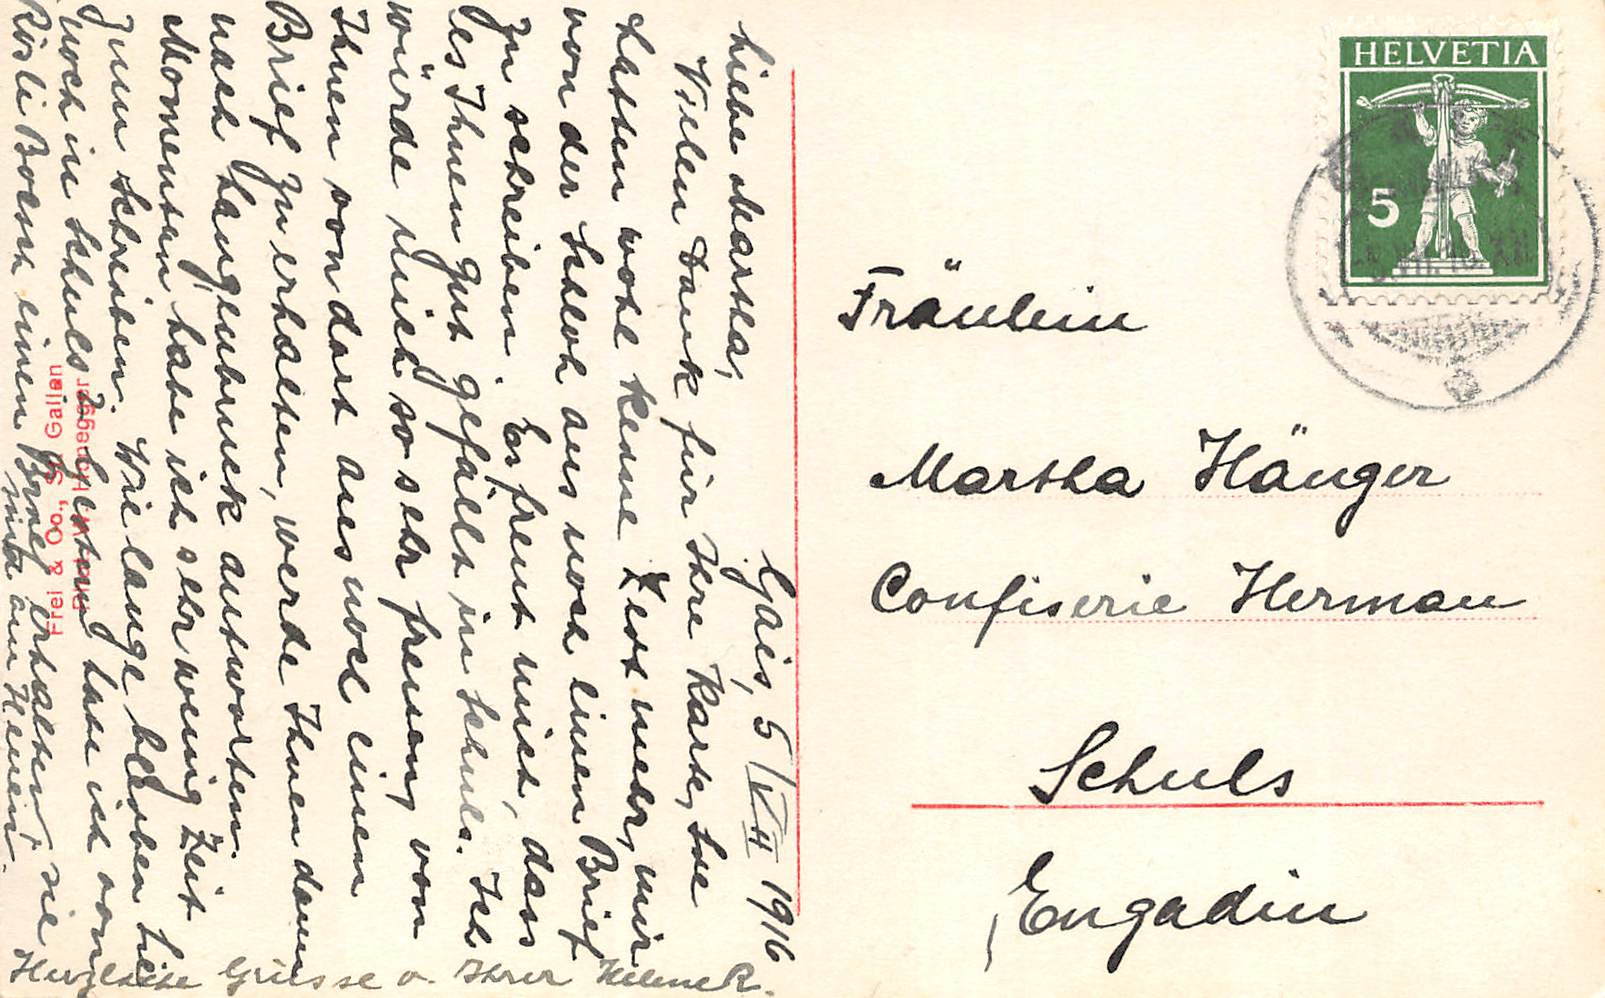 Gais, 5/VII 1916
Liebe Martha,
Vielen Dank für Ihre Karte, Sie
hatten wohl keine Zeit mehr, mir
von der Lenk aus noch einen Brief
zu schreiben. Es freut mich, dass
es Ihnen gut gefällt in Schuls. Ich
würde mich so sehr freuen, von
Ihnen von dort aus noch einen
Brief zu erhalten, werde Ihnen dann
nach Langenbruck antworten.
Momentan habe ich sehr wenig Zeit
zum Schreiben. Wie lange bleiben Sie
noch in Schuls? Gestern habe ich von
Rösli Boesch einen Brief erhalten, sie
Herzliche Grüsse v. Ihrer Helene R.
Frei & Co., St. Gallen
Honegger
HELVETIA
5
Fräulein
Martha Hänger
Confiserie Herman
Schuls
Engadin